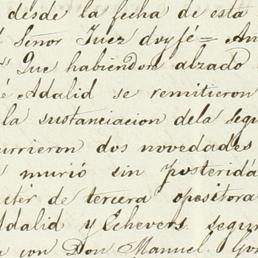 desde la fecha de esta
Señor Juez doyfé = An
Que habiendose alzado
é Adalid se remitieron
la sustanciacion dela segu
urrieron dos novedades
murió sin posterida
cter de tercera opositora
Adalid y Echevers segun
con Don Manuel Gon